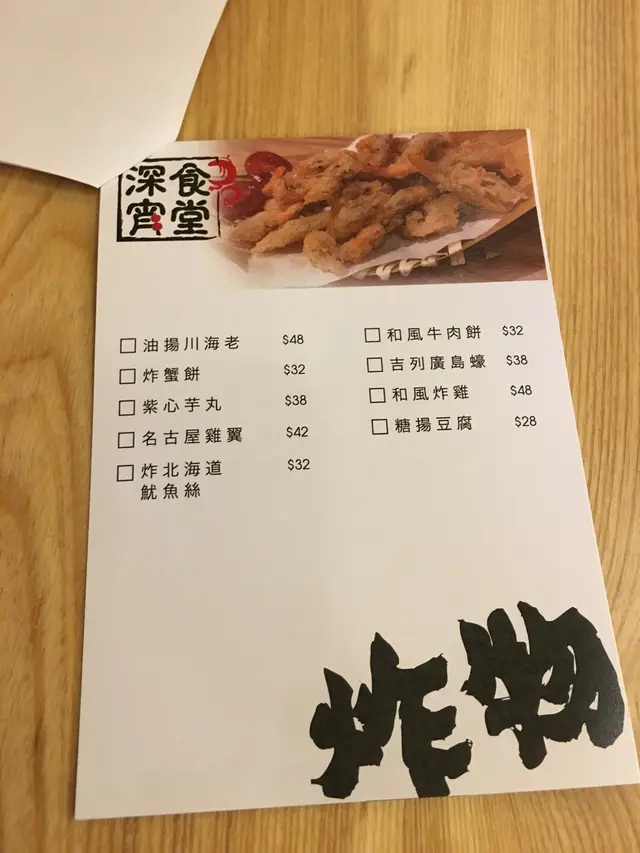 深宵食堂
油揚川海老 $48
炸蟹餅 $32
紫心芋丸 $38
名古屋雞翼 $42
炸北海道 $32
魷魚絲
和風牛肉餅 $32
吉列廣島蠔 $38
和風炸雞 $48
糖揚豆腐 $28
炸物